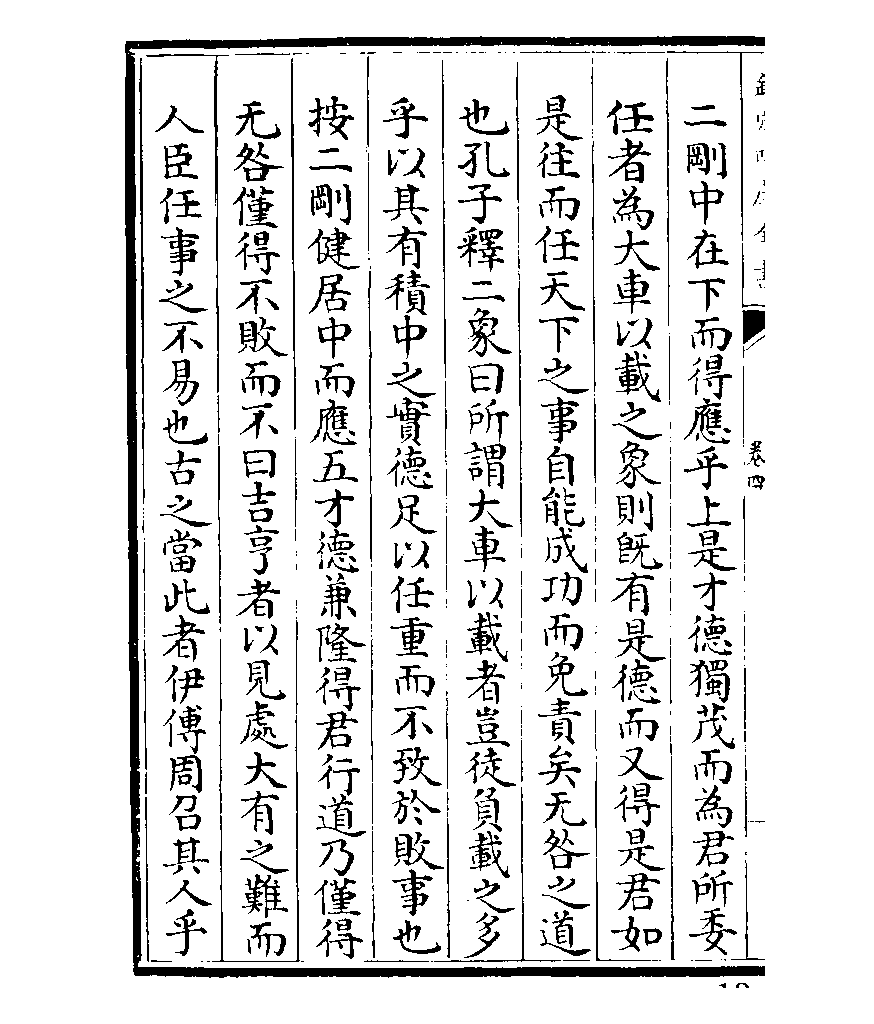 欽定四庫全書
卷四
二剛中在下而得應乎上是才德獨茂而為君所委
任者為大車以載之象則既有是德而又得是君如
是往而任天下之事自能成功而免責矣无咎之道
也孔子釋二象曰所謂大車以載者豈徒負載之多
乎以其有積中之實德足以任重而不致於敗事也
按二剛健居中而應五才德兼隆得君行道乃僅得
无咎僅得不敗而不曰吉亨者以見處大有之難而
人臣任事之不易也古之當此者伊傅周召其人乎